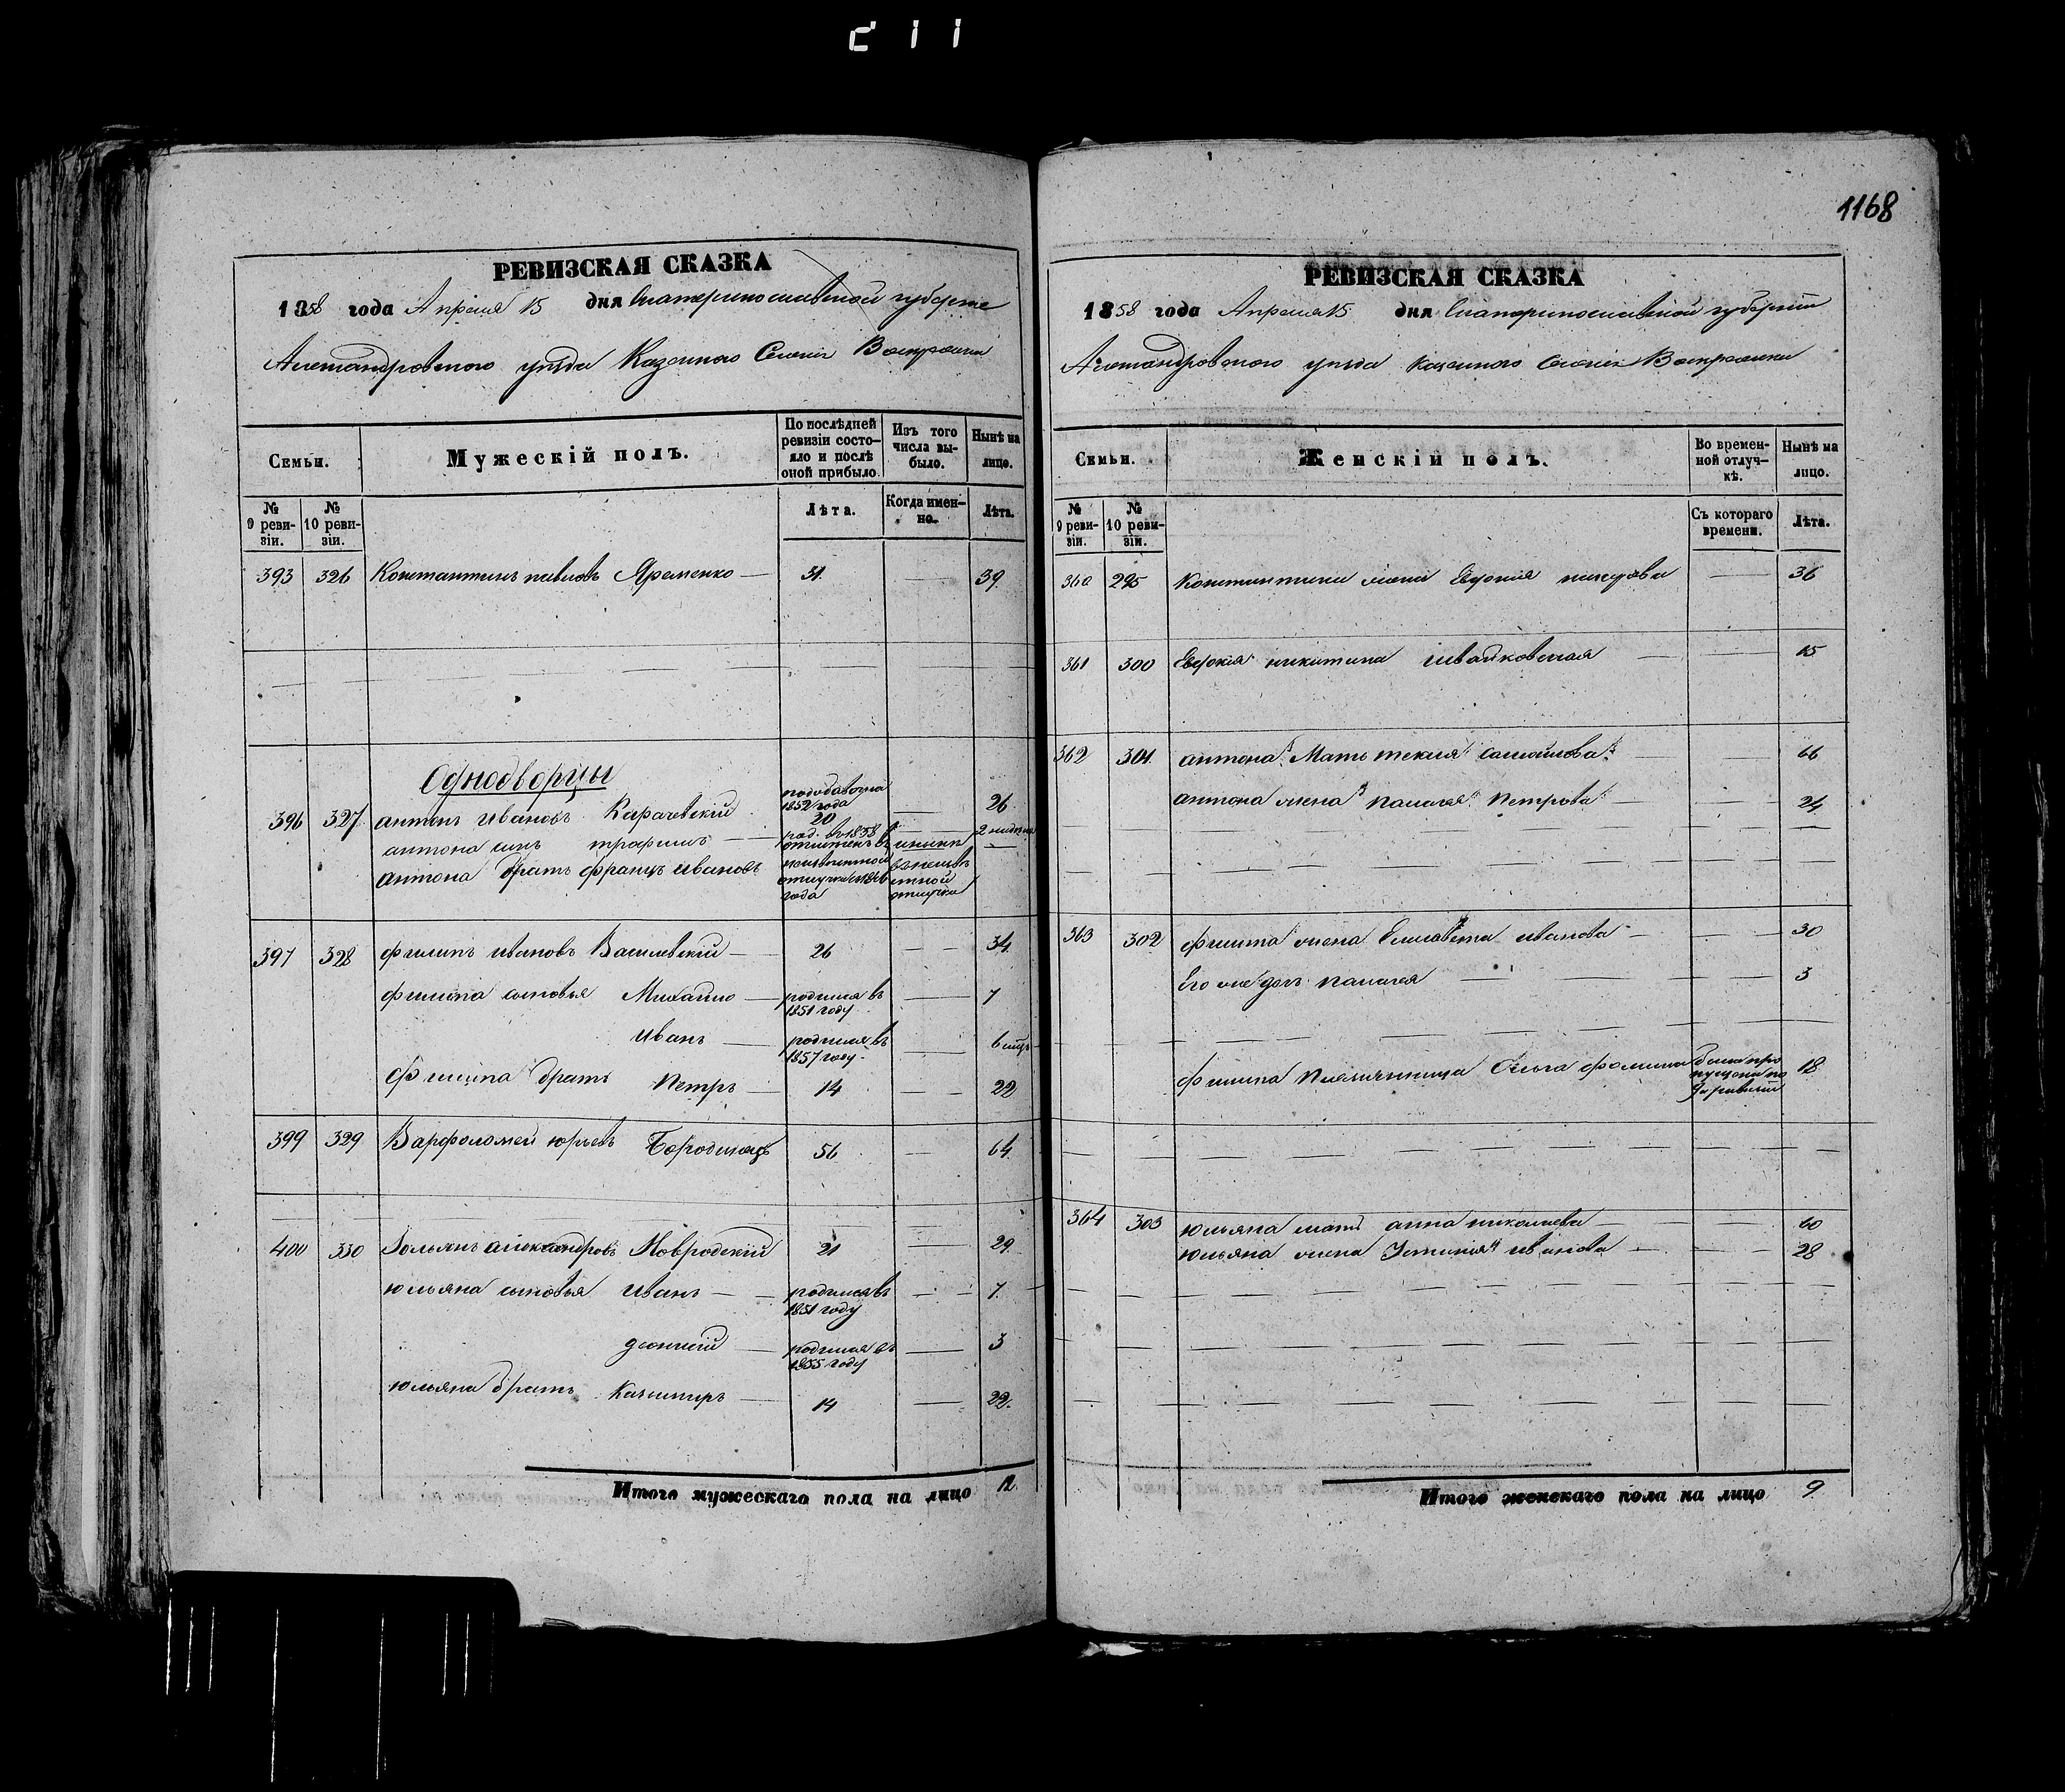 1168
РЕВИЗСКАЯ СКАЗКА
1858 года Апреля 15 дня Екатеринославской губерніи
Александровского уезда Казенного Селенія Воскресенки
Семьи.
Мужескій полъ.
По послѣдней ревизіи состо-яло и послѣ оной прибыло.
Изъ того числа вы-было.
Нынѣ на лицо.
№ 9 реви-зіи.
№ 10 реви-зіи.
Лѣта.
Когда имен-но.
Лѣта.
393 326 Константинъ павловъ Яременко 31. 39.
Однодворцы
396 327 антонъ ивановъ Карачевскій 1852 года 20 26
антона сынъ трофимъ род. въ 1858 2 недели
антона братъ францъ ивановъ
397 328 филипъ ивановъ Василевскій 26 34
филипа сыновья Михайло родился въ 1851 году 7
иванъ родился въ 1857 году 6 мцъ
филипа братъ петръ 14 22
399 329 Варфоломей юрьевъ 56 64
400 330 александровъ 21 29
юльяна сыновья иванъ родился въ 1851 году 7.
родился въ 1855 году 3
юльяна братъ Казимиръ 14 22.
Итого мужескаго пола на лицо 12
РЕВИЗСКАЯ СКАЗКА
1858 года Апреля 15 дня Екатеринославской губерніи
Александровского уезда казенного Селенія Воскресенки
Семьи.
Женскій полъ.
Во времен-ной отлуч-кѣ.
Нынѣ на лицо.
№ 9 реви-зіи.
№ 10 реви-зіи.
Съ котораго времени.
Лѣта.
360 295 Константина жена Евдокия 36
361 300 Евдокия никитина 15
362 301 антона Мать текля 66
антона жена палагея петрова 24
363 302 филипа жена Елисавета иванова 30
Его же дочь палагея 3
филипа племянница Ольга фомина была про пущена по 9й ревизіи 18
364 303 юльяна мать анна николаева 60
юльяна жена Устинія иванова 28
Итого женскаго пола на лицо 9